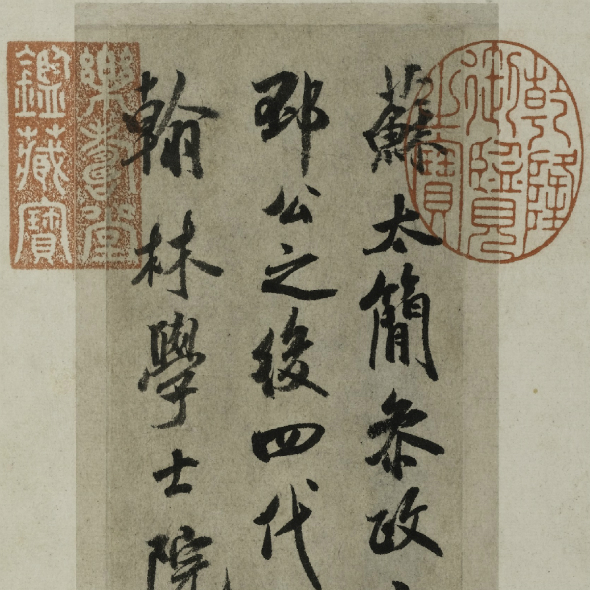 蘇太簡參政
邳公之後四代
翰林學士院
乾隆御覽之寶
樂壽堂鑑藏寶